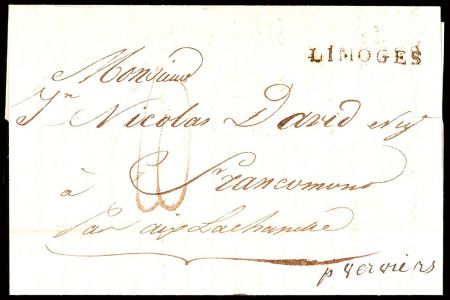 LIMOGES
Monsieur
Jn Nicolas David Neg
à Francomont
Par aix Lachapelle
p verviers